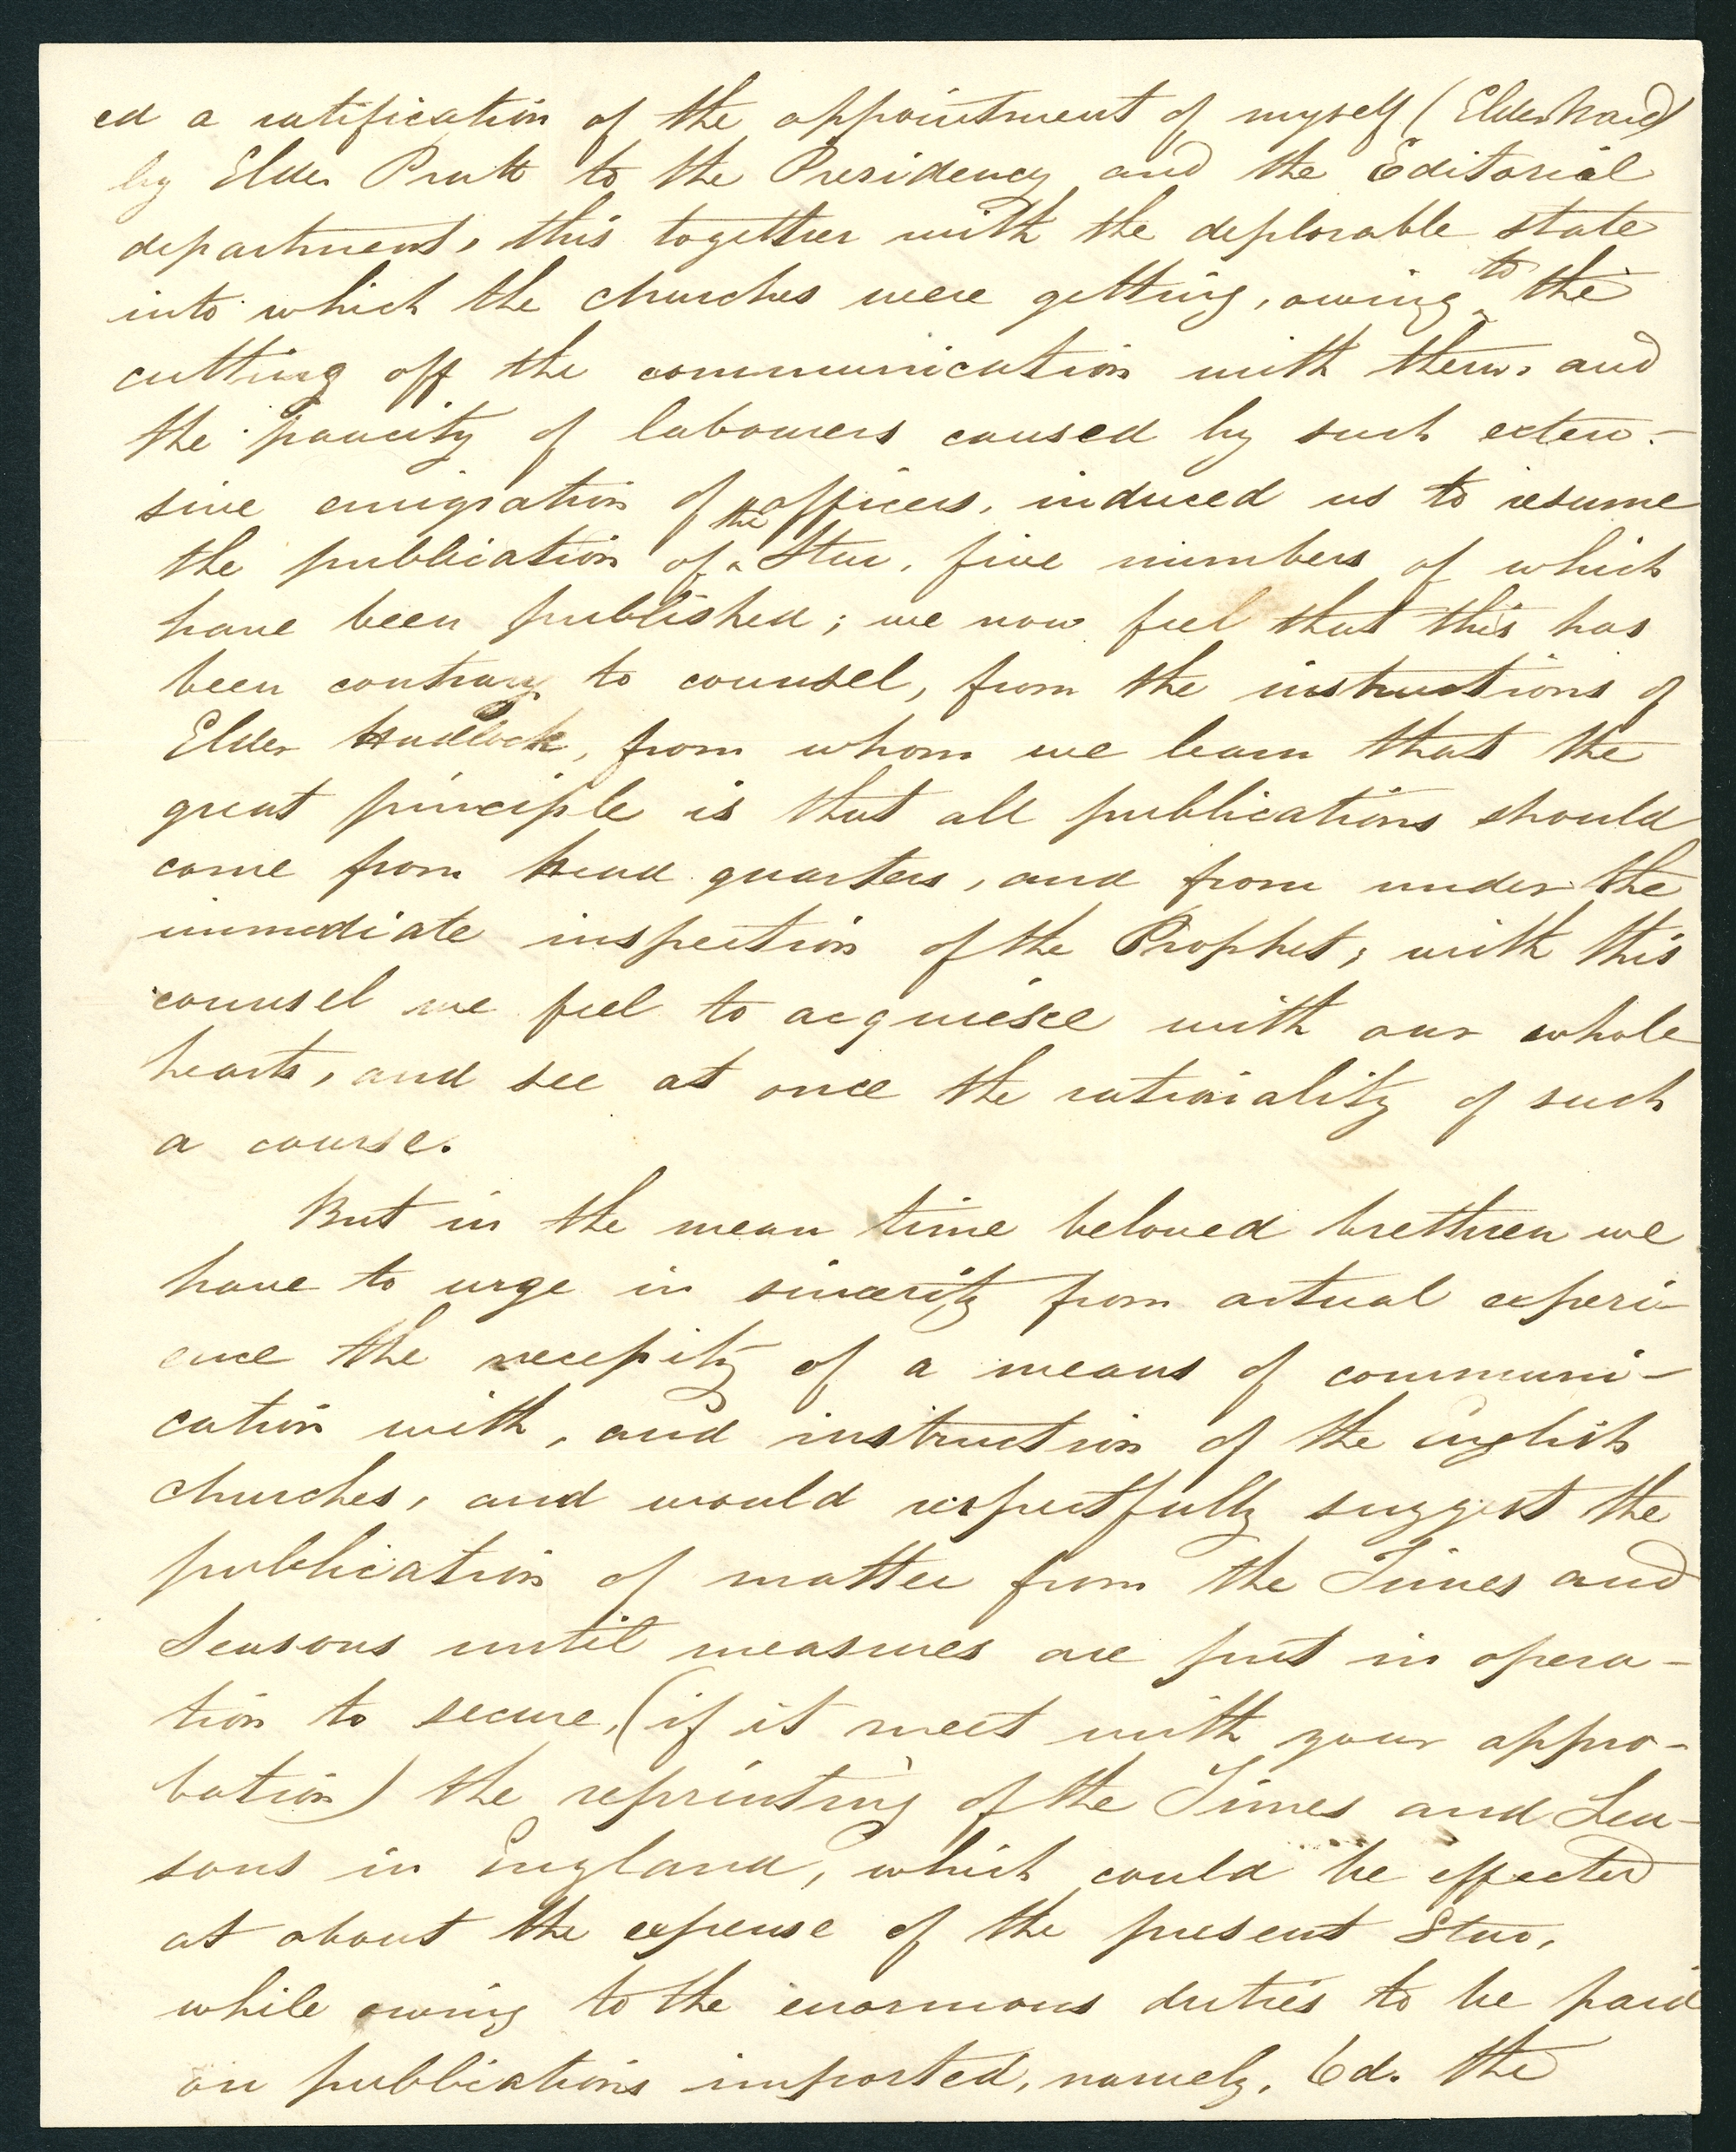 ed a ratification of the appointment of myself (Elder Ward)
by Elder Pratt to the Presidency and the Editorial
department, this together with the deplorable state
into which the churches were getting, owing to the
cutting off the communication with them, and
the paucity of labourers caused by such exten-
sive emigration of officers, induced us to resume
the publication of the Star, five numbers of which
have been published; we now feel that this has
been contrary to counsel, from the instructions of
Elder Hadlock, from whom we learn that the
great principle is that all publications should
come from head quarters, and from under the
immediate inspection of the Prophet; with this
counsel we feel to acquiesce with our whole
hearts, and see at once the rationality of such
a course.
But in the mean time beloved brethren we
have to urge in sincerity from actual experi-
ence the necessity of a means of communi-
cation with, and instruction of the English
churches, and would respectfully suggest the
publication of matter from the Times and
Seasons until measures are put in opera-
tion to secure, (if it meet with your appro-
bation) the reprinting of the Times and Sea-
sons in England, which could be effected
at about the expense of the present Star,
while owing to the enormous duties to be paid
on publications imported, namely, 6d. the